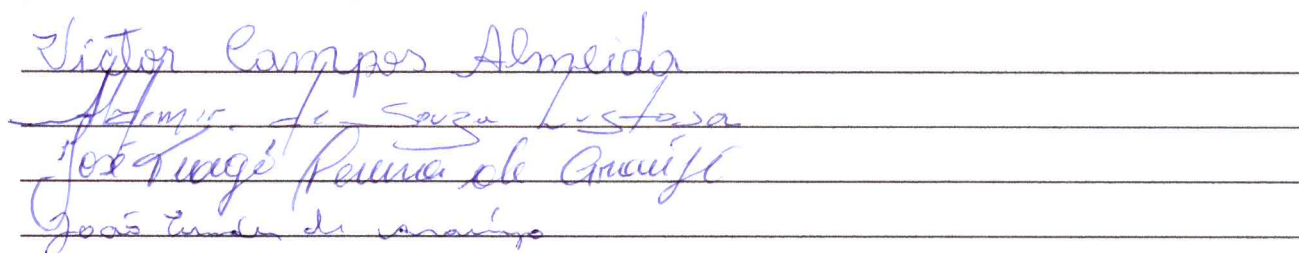 Victor Campos Almeida
de Souza Lustosa
José Tiago Pereira de Araújo
João de Araújo